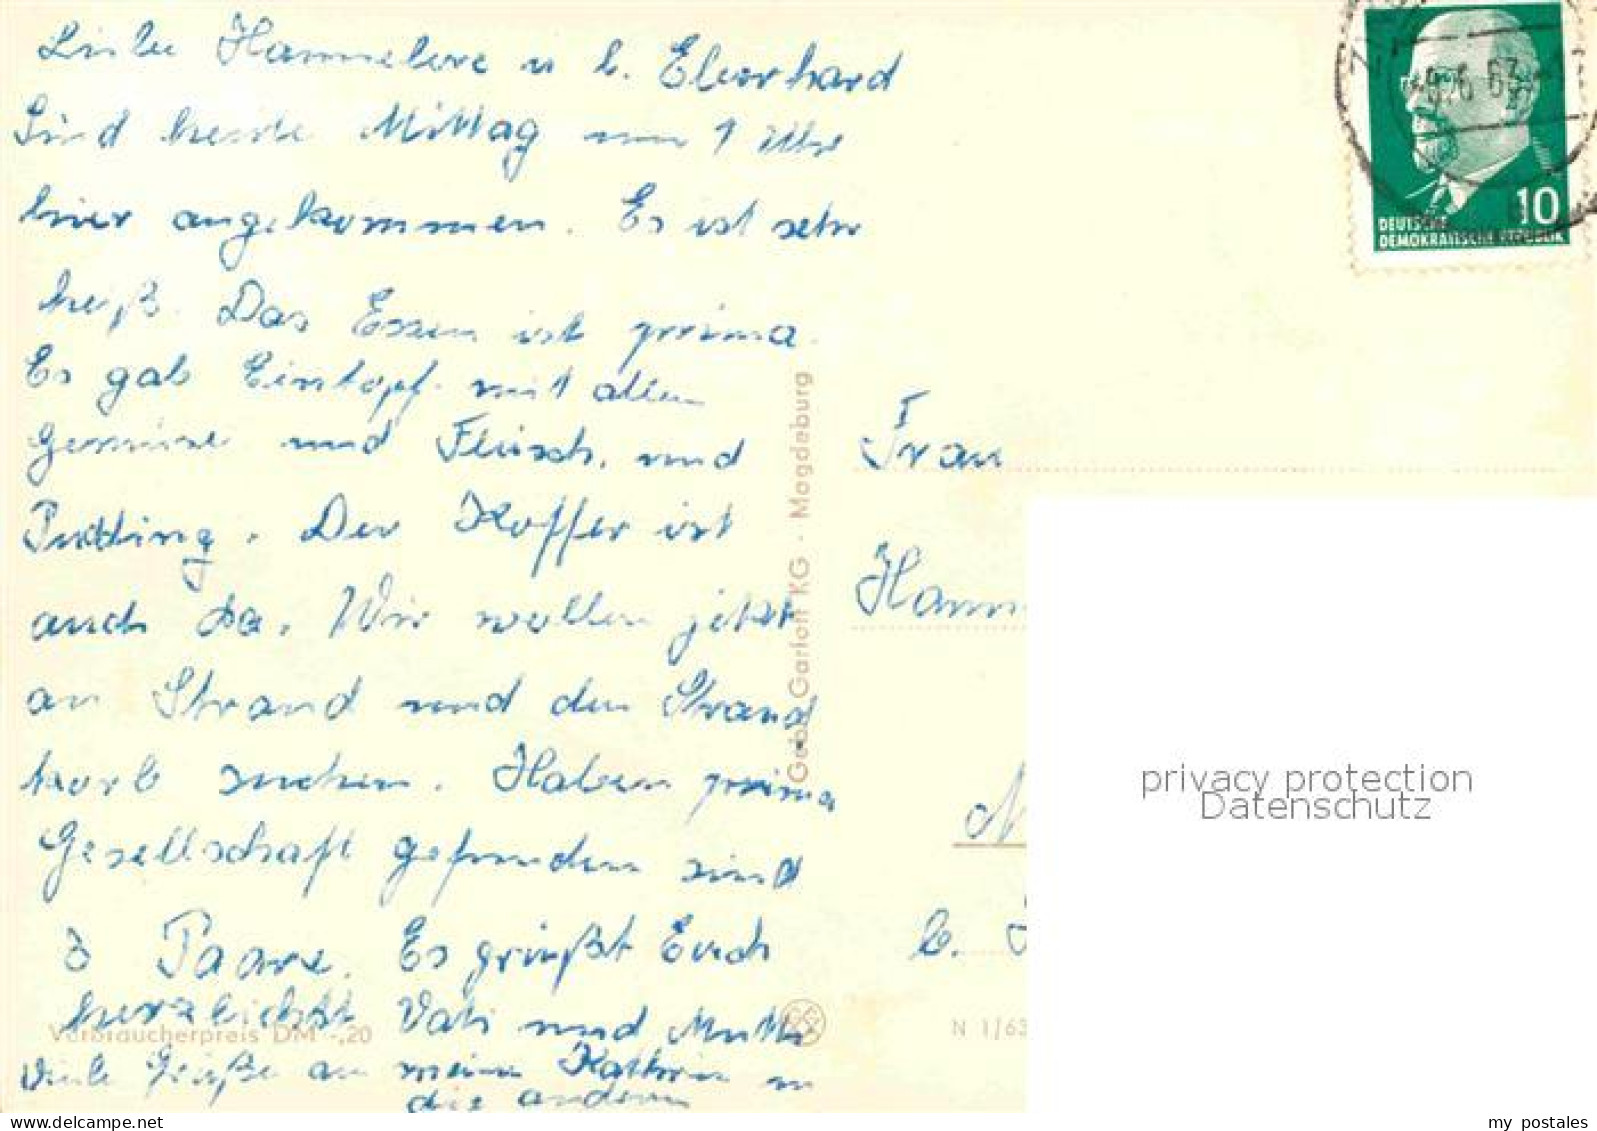 Liebe Hannelore u l. Eberhard
Sind heute Mittag um 1 Uhr
hier angekommen. Es ist sehr
heiß. Das Essen ist prima.
Es gab Eintopf mit allen
Gemüse und Fleisch, und
Pudding. Der Koffer ist
auch da. Wir wollen jetzt
an Strand und den Strand
korb suchen. Haben prima
Gesellschaft gefunden sind
3 Paare. Es grüßt Euch
herzlichst Vati und Mutti
Viele Grüße an meine Kathrin u
die andern
Verbraucherpreis DM -,20
Gebr. Garloff KG · Magdeburg
9.6.63
10
DEUTSCHE
DEMOKRATISCHE REPUBLIK
Frau
Hann
N 1/63
privacy protection
Datenschutz
my postales
www.delcampe.net